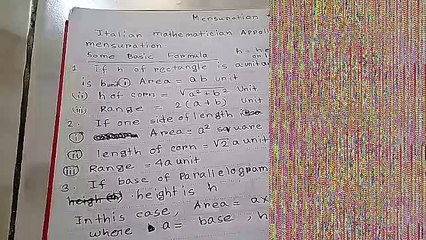 Mensuration
Italian mathematician Appol
mensuration
Some Basic Formula h = he
1. If h of rectangle is a unit a
is b unit (i) Area = ab unit
(ii) h of corn = √a²+b² unit
(iii) Range = 2(a+b) unit
2. If one side of length is
(i) Area = a² square
(ii) length of corn = √2 a unit
(iii) Range = 4a unit
3. If base of Parallelogram
height is h
In this case, Area = ax
where a = base, h